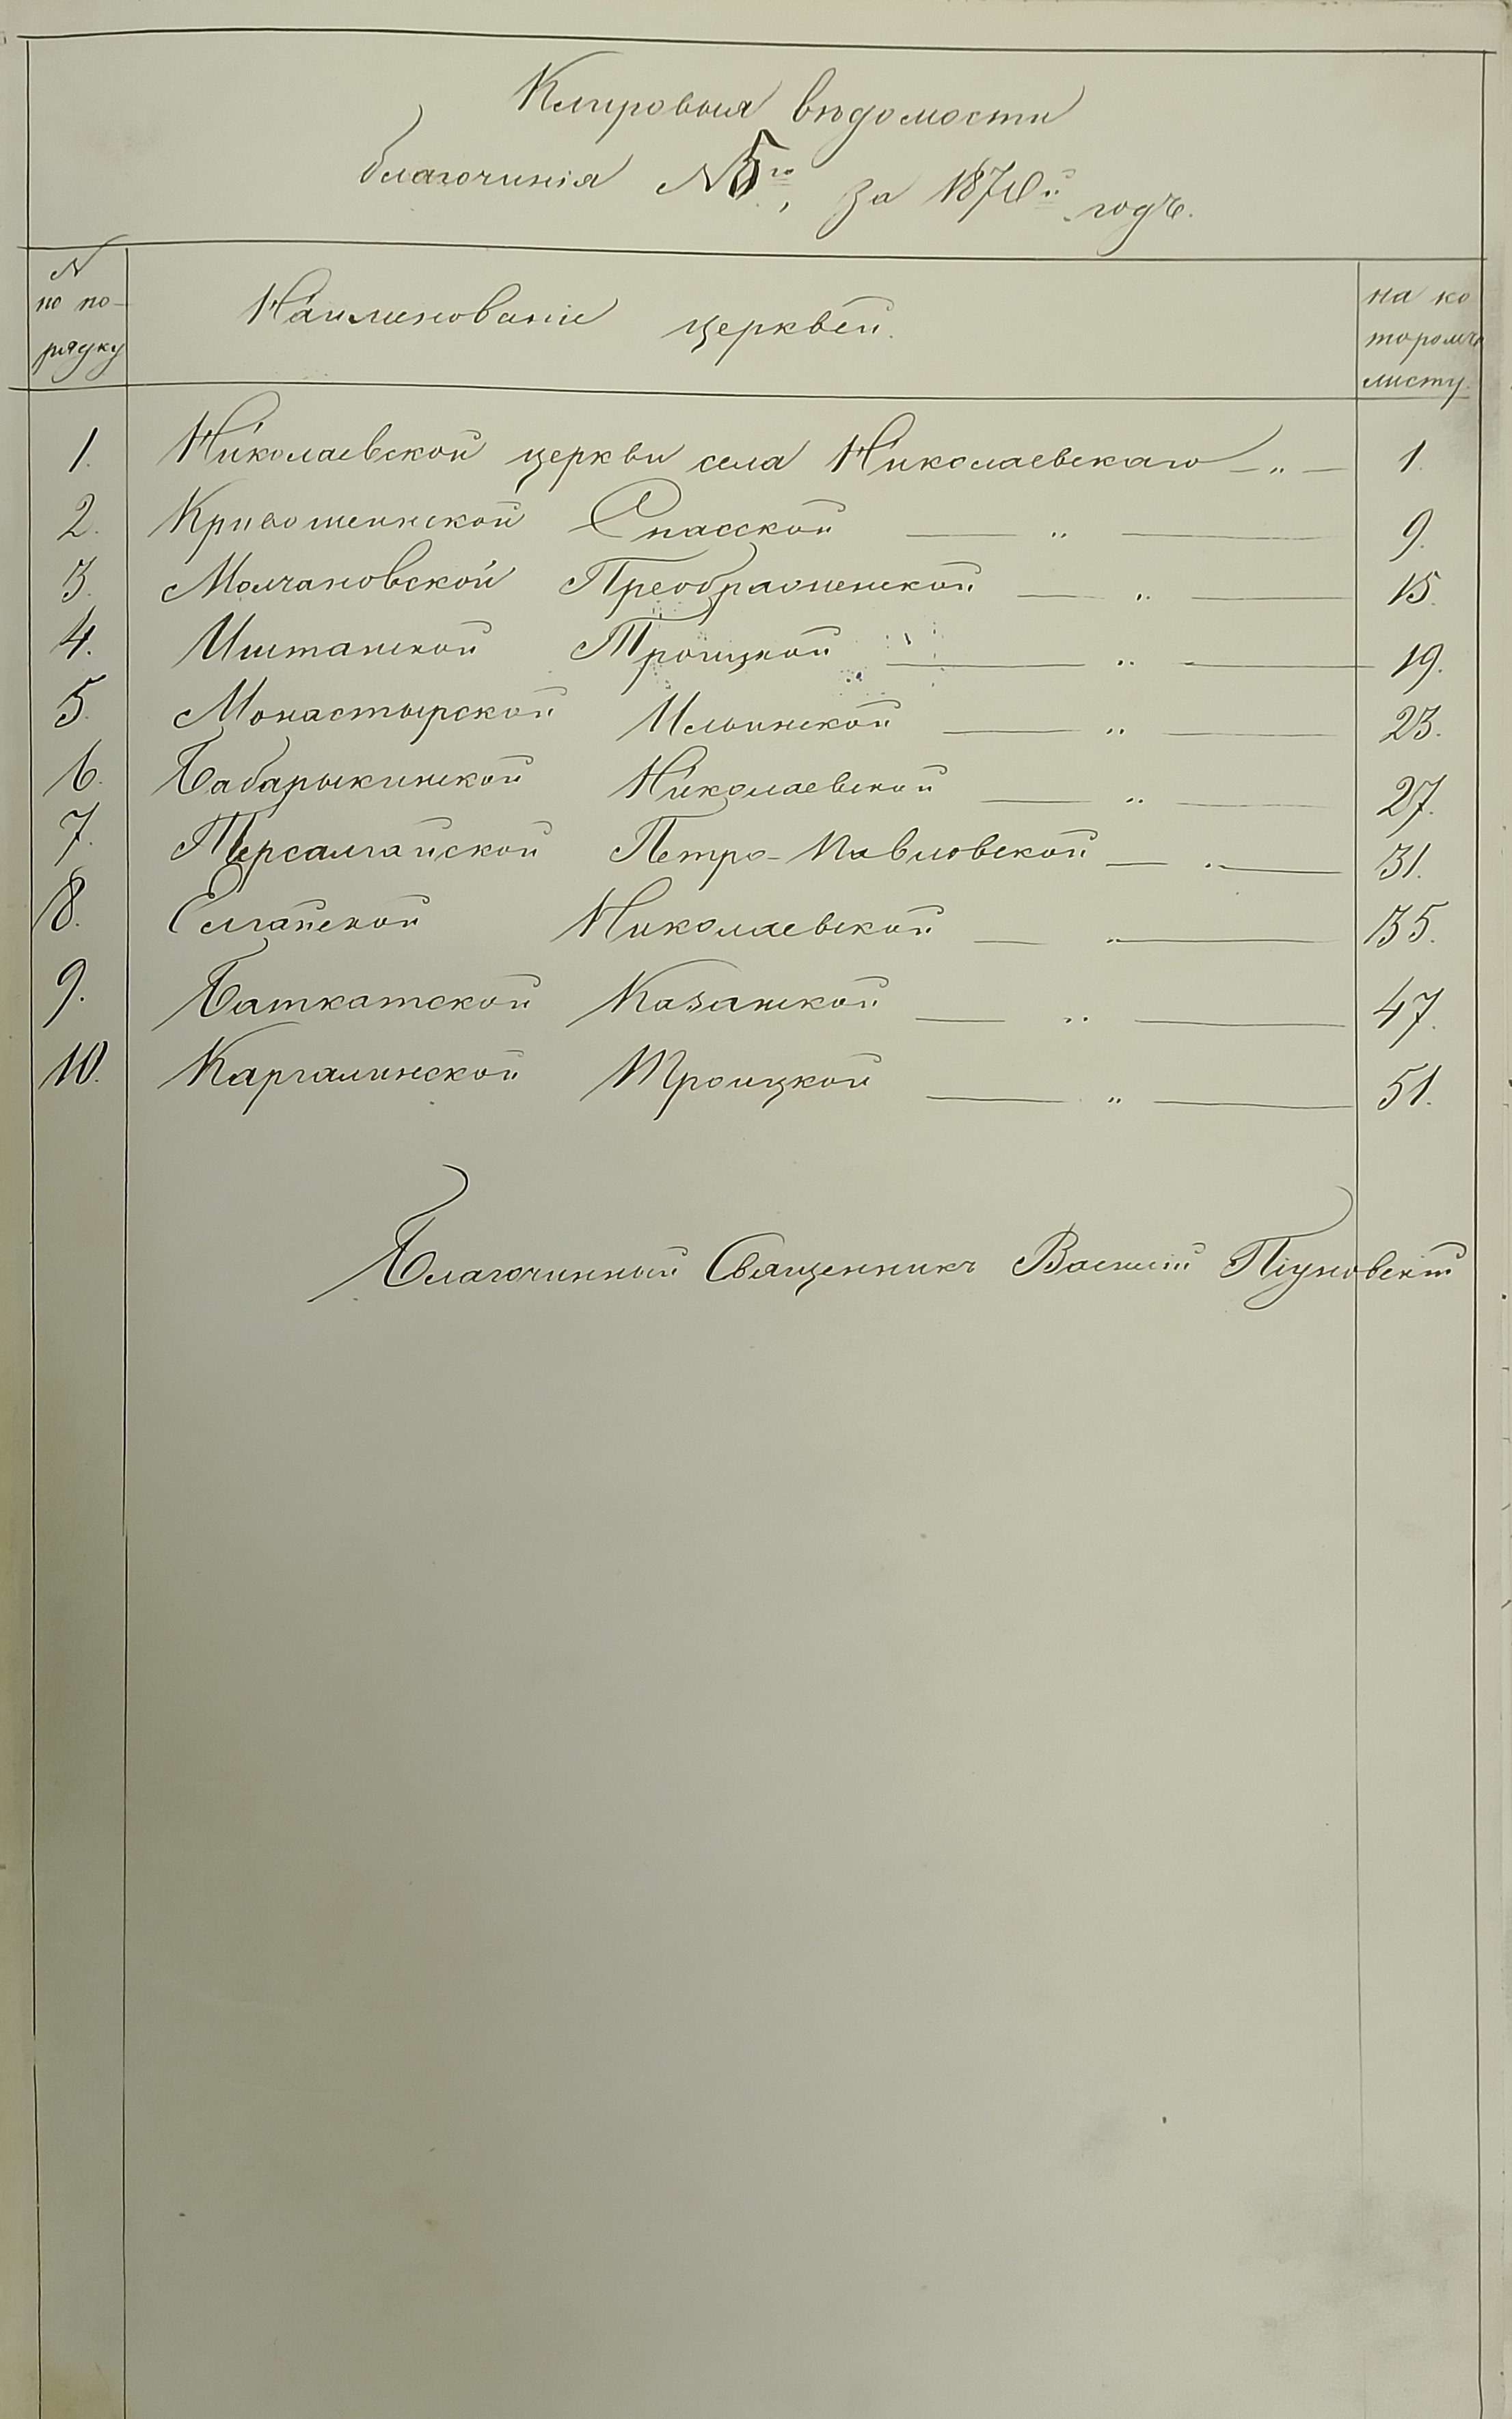 Клировыя вѣдомости
благочинія N 5го, за 1870й годъ.
N по порядку
Наименованіе церквей.
на которомъ листу.
1. Николаевской церкви села Николаевскаго — „ — 1.
2. Кривошеинской Спасской — „ — 9.
3. Молчановской Преображенской — „ — 15.
4. Иштанской Троицкой — „ — 19.
5. Монастырской Ильинской — „ — 23.
6. Бабарыкинской Николаевской — „ — 27.
7. Терсалгайской Петро-Павловской — „ — 31.
8. Елгайской Николаевской — „ — 35.
9. Баткатской Казанской — „ — 47.
10. Каргалинской Троицкой — „ — 51.
Благочинный Священникъ Василій